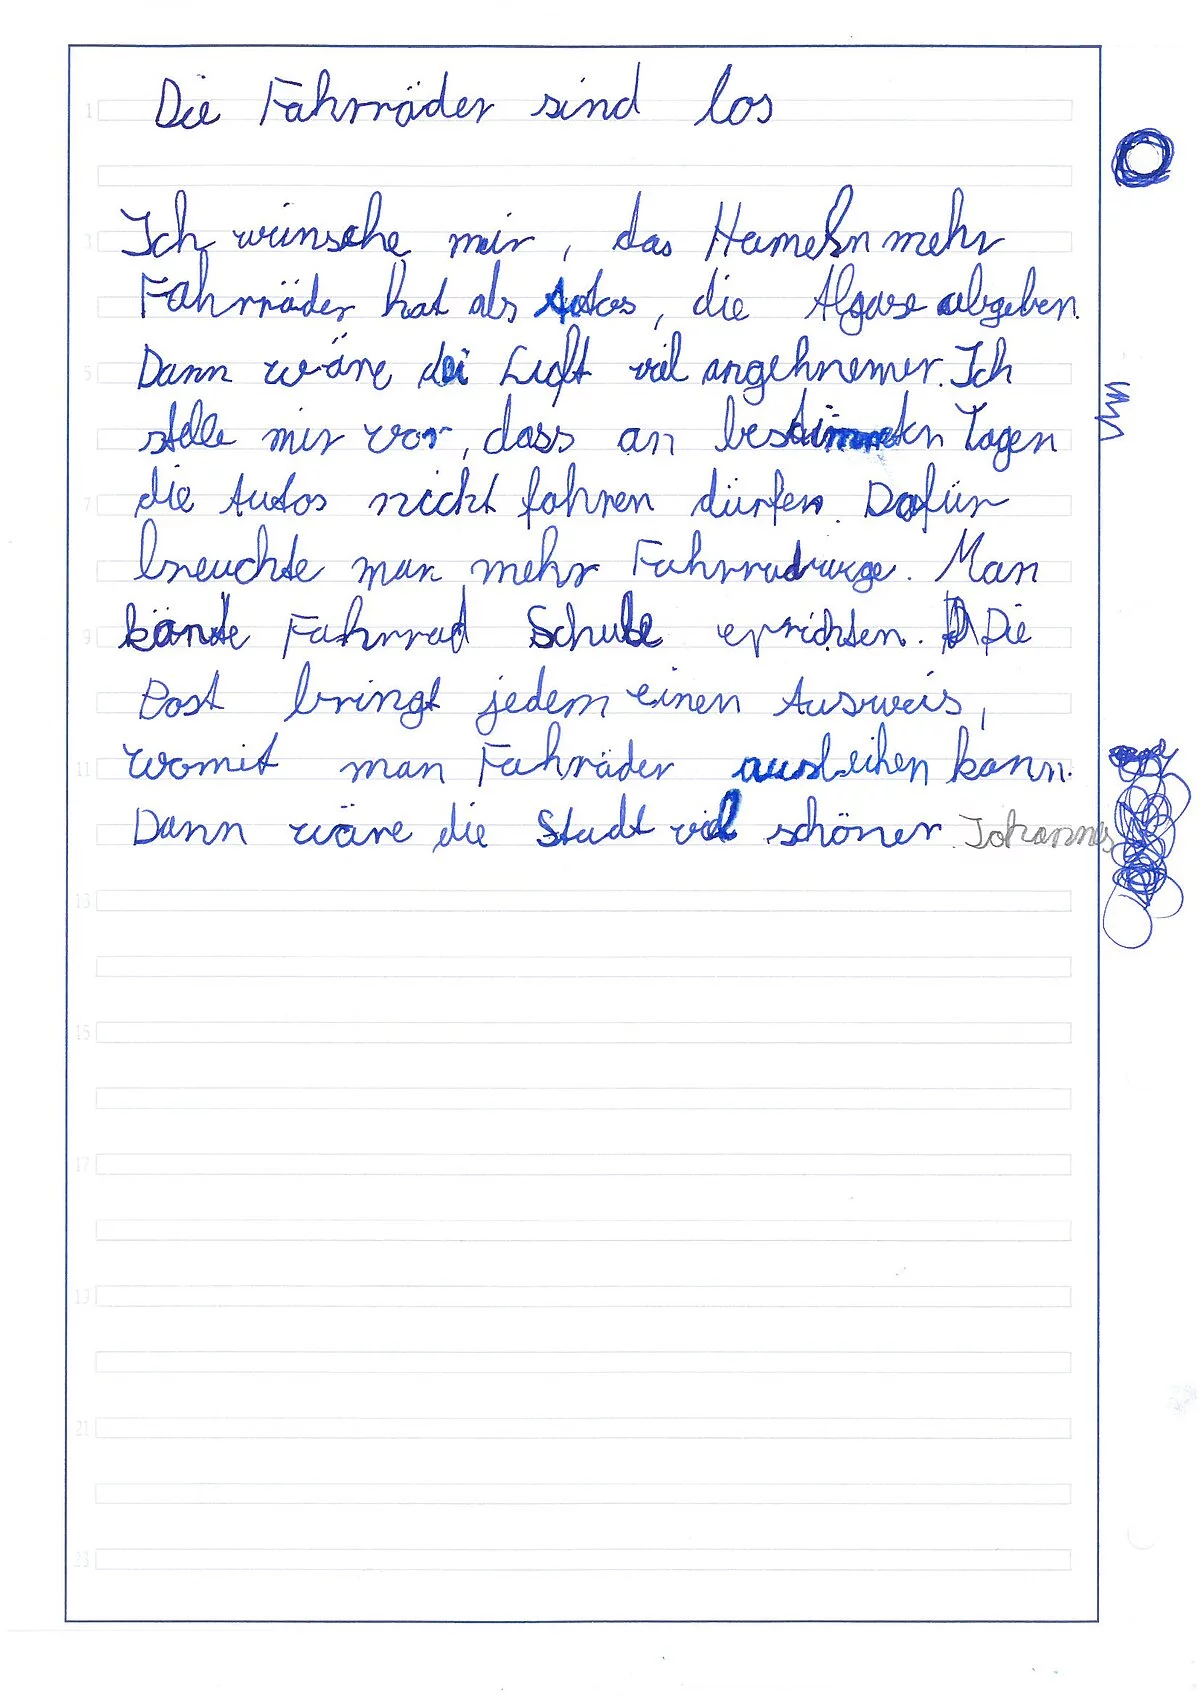 Die Fahrräder sind los
Ich wünsche mir, das Hameln mehr
Fahrräder hat als Autos, die Abgase abgeben.
Dann wäre die Luft viel angehnemer. Ich
stelle mir vor, dass an bestimmten Tagen
die Autos nicht fahren dürfen. Dafür
breuchte man mehr Fahrradwege. Man
könnte Fahrrad Schule eprichten. Die
Post bringt jedem einen Ausweis,
womit man Fahräder ausleihen kann.
Dann wäre die Stadt viel schöner. Johannes
1
3
5
7
9
11
13
15
17
19
21
23